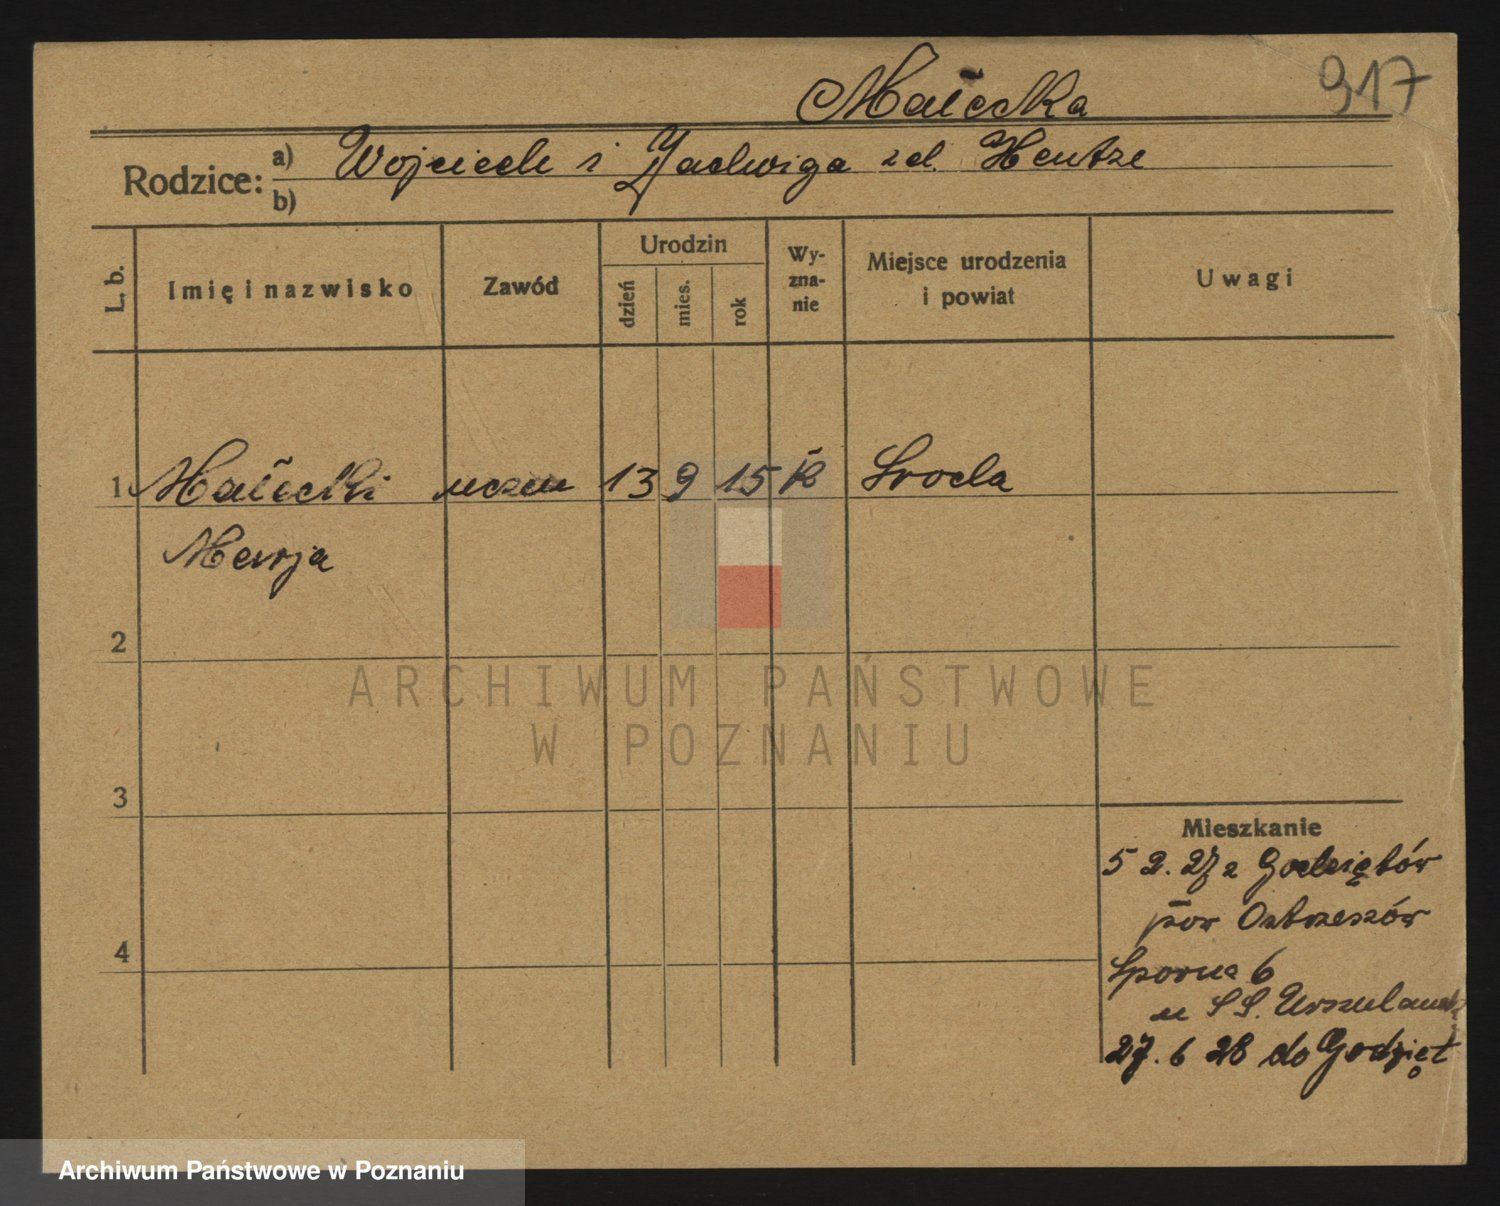 917
Małecka
Rodzice:
a) Wojciech i Jadwiga zd. Hentze
b)
L. b.
Imię i nazwisko
Zawód
Urodzin
dzień
mies.
rok
Wy-
zna-
nie
Miejsce urodzenia
i powiat
Uwagi
1 Małecki uczen 13 9 15 k Sroda
Marja
2
3
4
Mieszkanie
5 2. 27 z Godziętów
pow Ostrzeszów
Sporna 6
u S S. Urszulanek
27. 6 28 do Godzięt
ARCHIWUM PAŃSTWOWE
W POZNANIU
Archiwum Państwowe w Poznaniu